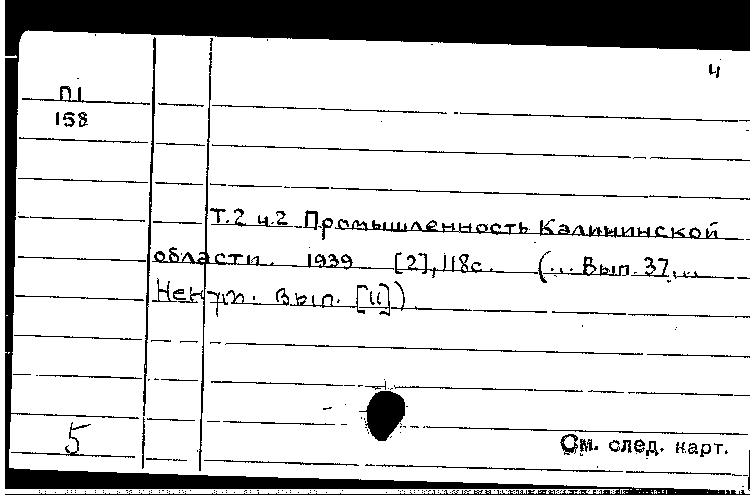 4
П1
158
Т.2 ч.2 Промышленность Калининской
области. 1939 [2], 118с. (... Вып. 37...
Ненум. Вып. [11])
5
См. след. карт.